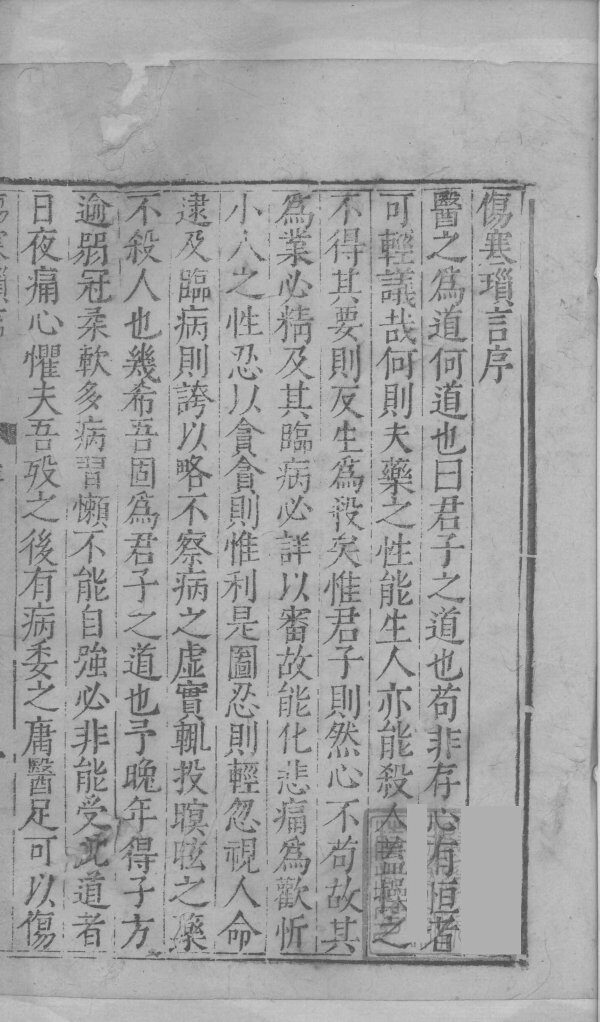 傷寒瑣言序
醫之爲道何道也曰君子之道也苟非存心有恒者
可輕議哉何則夫藥之性能生人亦能殺人蓋操之
不得其要則反生爲殺矣惟君子則然心不苟故其
爲業必精及其臨病必詳以審故能化悲痛爲歡忻
小人之性忍以貪貪則惟利是圖忍則輕忽視人命
逮及臨病則誇以略不察病之虛實輒投瞑眩之藥
不殺人也幾希吾固爲君子之道也予晚年得子方
逾弱冠柔軟多病習懶不能自強必非能受此道者
日夜痛心懼夫吾歿之後有病委之庸醫足可以傷